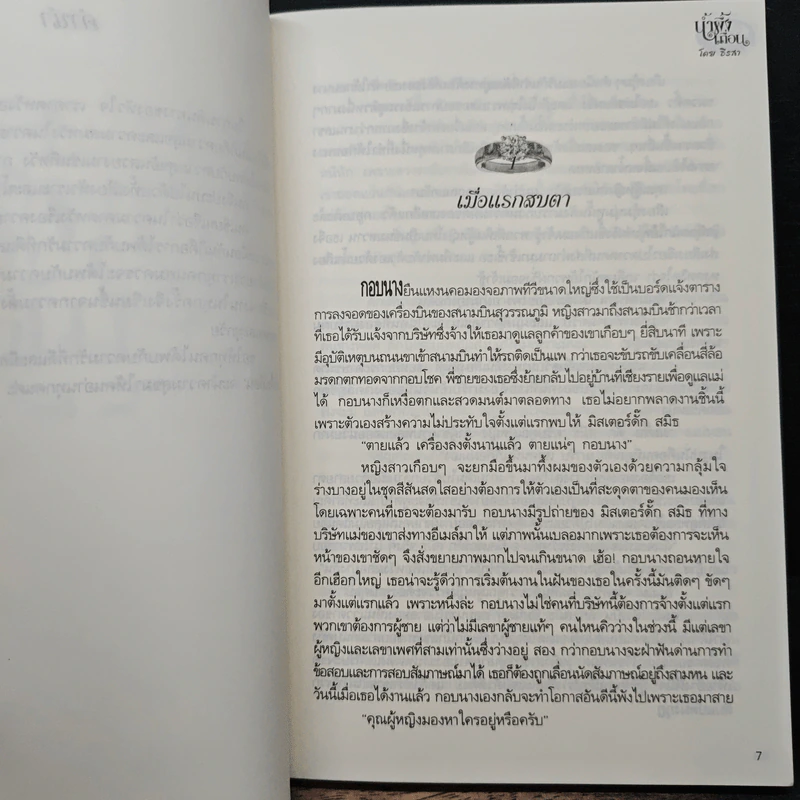 น้ำผึ้ง
เถื่อน
โดย ธิรสา
เมื่อแรกสบตา
กอบนางยืนแหงนคอมองจอภาพทีวีขนาดใหญ่ซึ่งใช้เป็นบอร์ดแจ้งตาราง
การลงจอดของเครื่องบินของสนามบินสุวรรณภูมิ หญิงสาวมาถึงสนามบินช้ากว่าเวลา
ที่เธอได้รับแจ้งจากบริษัทซึ่งจ้างให้เธอมาดูแลลูกค้าของเขาเกือบๆ ยี่สิบนาที เพราะ
มีอุบัติเหตุบนถนนขาเข้าสนามบินทำให้รถติดเป็นแพ กว่าเธอจะขับรถขับเคลื่อนสี่ล้อ
มรดกตกทอดจากกอบโชค พี่ชายของเธอซึ่งย้ายกลับไปอยู่บ้านที่เชียงรายเพื่อดูแลแม่
ได้ กอบนางก็เหงื่อตกและสวดมนต์มาตลอดทาง เธอไม่อยากพลาดงานชิ้นนี้
เพราะตัวเองสร้างความไม่ประทับใจตั้งแต่แรกพบให้ มิสเตอร์ดั๊ก สมิธ
“ตายแล้ว เครื่องลงตั้งนานแล้ว ตายแน่ๆ กอบนาง”
หญิงสาวเกือบๆ จะยกมือขึ้นมาทึ้งผมของตัวเองด้วยความกลุ้มใจ
ร่างบางอยู่ในชุดสีสันสดใสอย่างต้องการให้ตัวเองเป็นที่สะดุดตาของคนมองเห็น
โดยเฉพาะคนที่เธอจะต้องมารับ กอบนางมีรูปถ่ายของ มิสเตอร์ดั๊ก สมิธ ที่ทาง
บริษัทแม่ของเขาส่งทางอีเมล์มาให้ แต่ภาพนั้นเบลอมากเพราะเธอต้องการจะเห็น
หน้าของเขาชัดๆ จึงสั่งขยายภาพมากไปจนเกินขนาด เฮ้อ! กอบนางถอนหายใจ
อีกเฮือกใหญ่ เธอน่าจะรู้ดีว่าการเริ่มต้นงานในฝันของเธอในครั้งนี้มันติดๆ ขัดๆ
มาตั้งแต่แรกแล้ว เพราะหนึ่งล่ะ กอบนางไม่ใช่คนที่บริษัทนี้ต้องการจ้างตั้งแต่แรก
พวกเขาต้องการผู้ชาย แต่ว่าไม่มีเลขาผู้ชายแท้ๆ คนไหนคิวว่างในช่วงนี้ มีแต่เลขา
ผู้หญิงและเลขาเพศที่สามเท่านั้นซึ่งว่างอยู่ สอง กว่ากอบนางจะฝ่าฟันด่านการทำ
ข้อสอบและการสอบสัมภาษณ์มาได้ เธอก็ต้องถูกเลื่อนนัดสัมภาษณ์อยู่ถึงสามหน และ
วันนี้เมื่อเธอได้งานแล้ว กอบนางเองกลับจะทำโอกาสอันดีนี้พังไปเพราะเธอมาสาย
“คุณผู้หญิงมองหาใครอยู่หรือครับ”
7